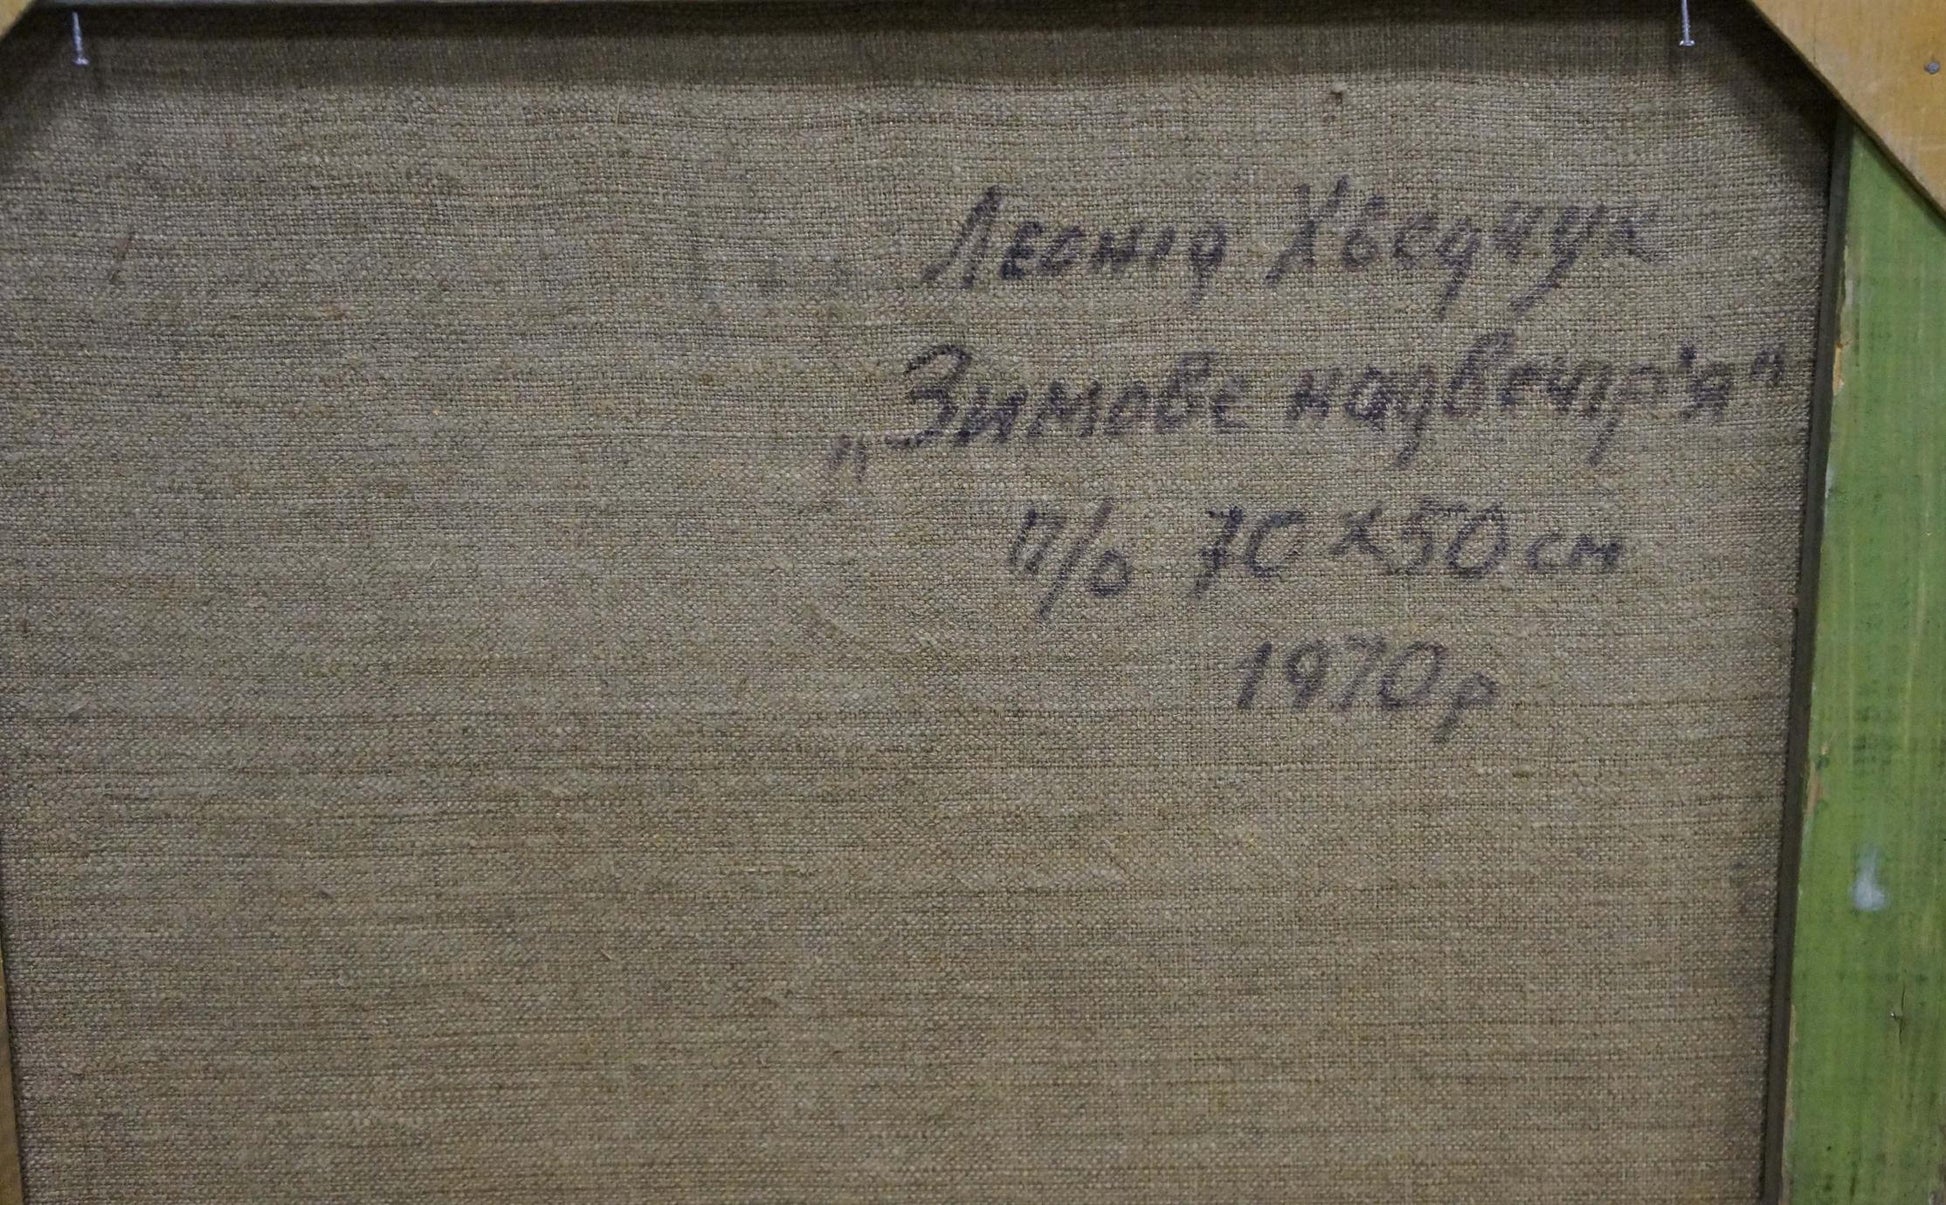 Леонід Хведчук
„Зимове надвечір'я"
п/о 70x50 см
1970 р